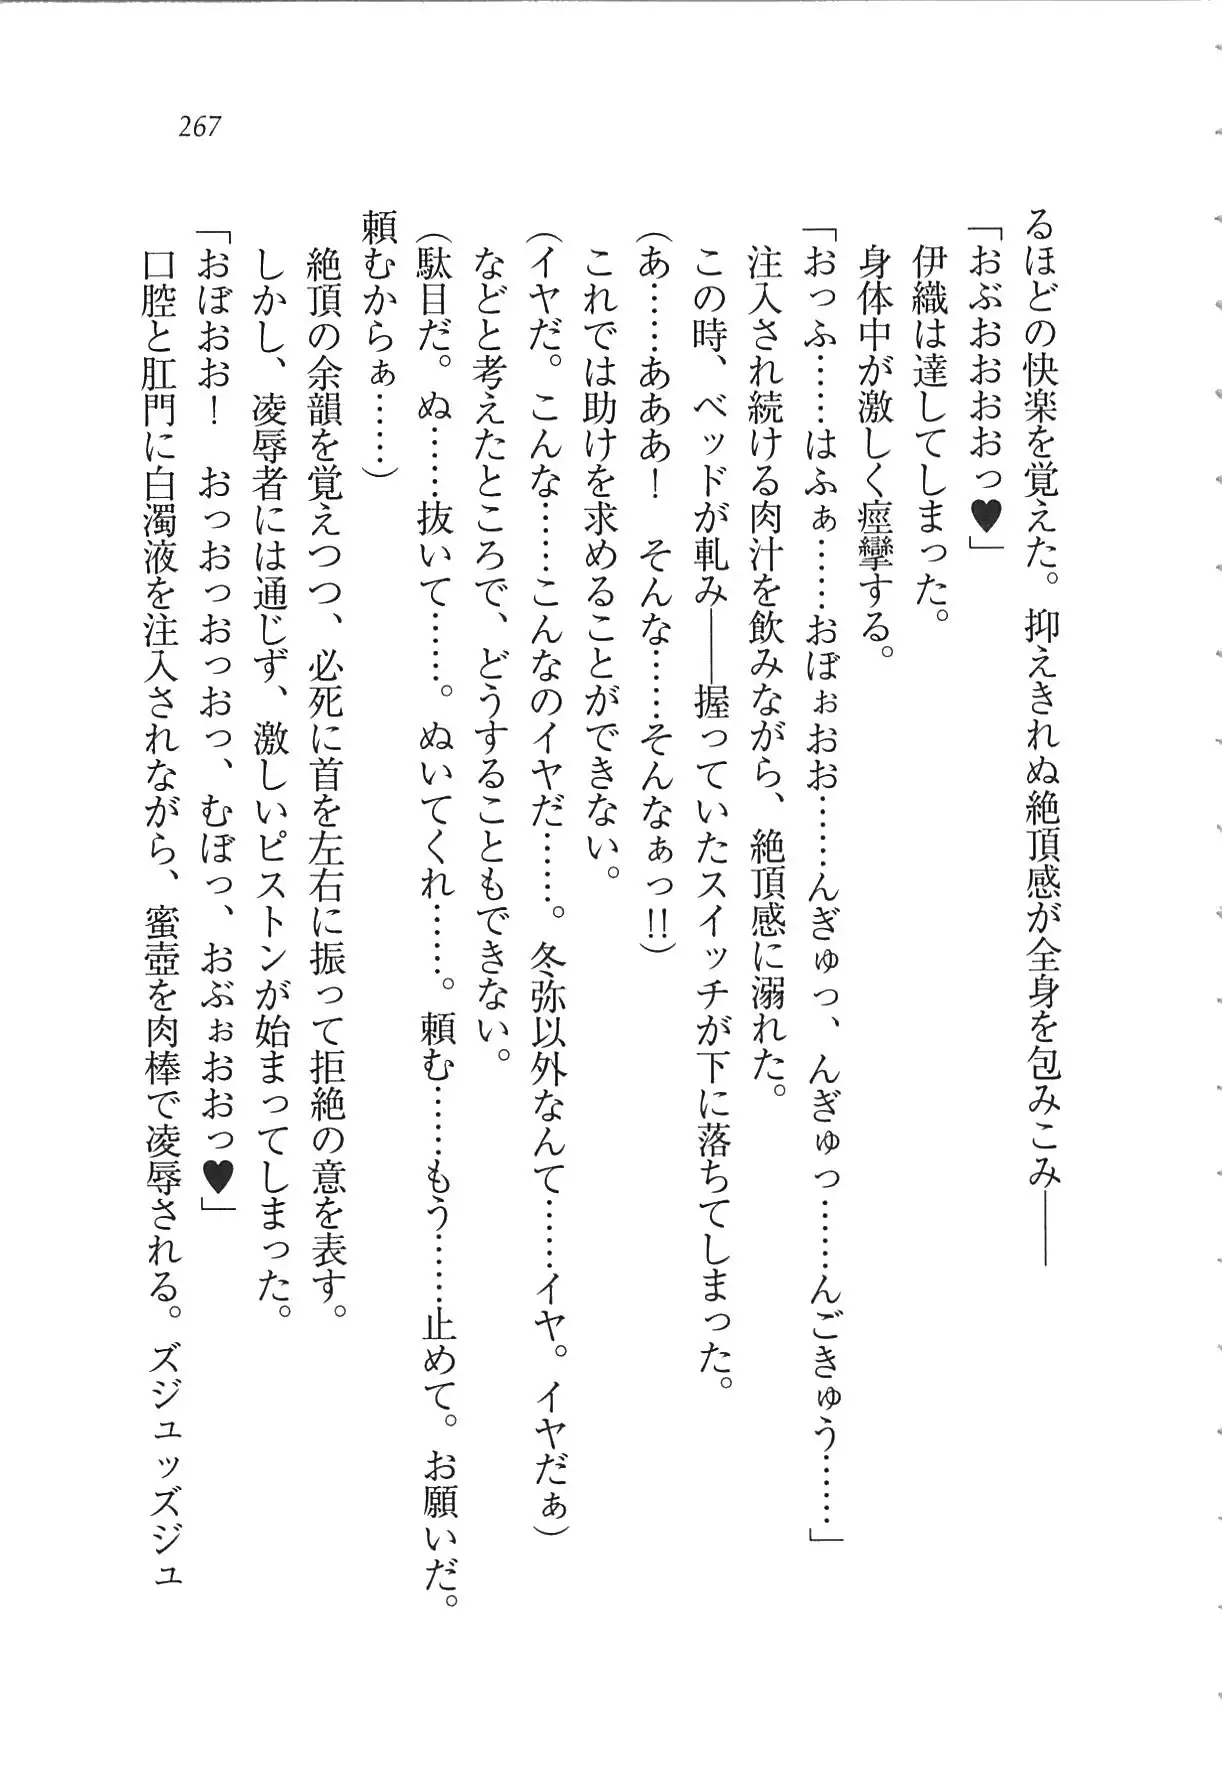 267
るほどの快楽を覚えた。抑えきれぬ絶頂感が全身を包みこみ――
「おぶおおおおっ♥」
伊織は達してしまった。
身体中が激しく痙攣する。
「おっふ……はふぁ……おぼぉおお……んぎゅっ、んぎゅっ……んごきゅう……」
注入され続ける肉汁を飲みながら、絶頂感に溺れた。
この時、ベッドが軋み――握っていたスイッチが下に落ちてしまった。
(あ……あああ！　そんな……そんなぁっ!!)
これでは助けを求めることができない。
(イヤだ。こんな……こんなのイヤだ……。冬弥以外なんて……イヤ。イヤだぁ)
などと考えたところで、どうすることもできない。
(駄目だ。ぬ……抜いて……。ぬいてくれ……。頼む……もう……止めて。お願いだ。
頼むからぁ……)
絶頂の余韻を覚えつつ、必死に首を左右に振って拒絶の意を表す。
しかし、凌辱者には通じず、激しいピストンが始まってしまった。
「おぼおお！　おっおっおっおっ、むぼっ、おぶぉおおっ♥」
口腔と肛門に白濁液を注入されながら、蜜壺を肉棒で凌辱される。ズジュッズジュ